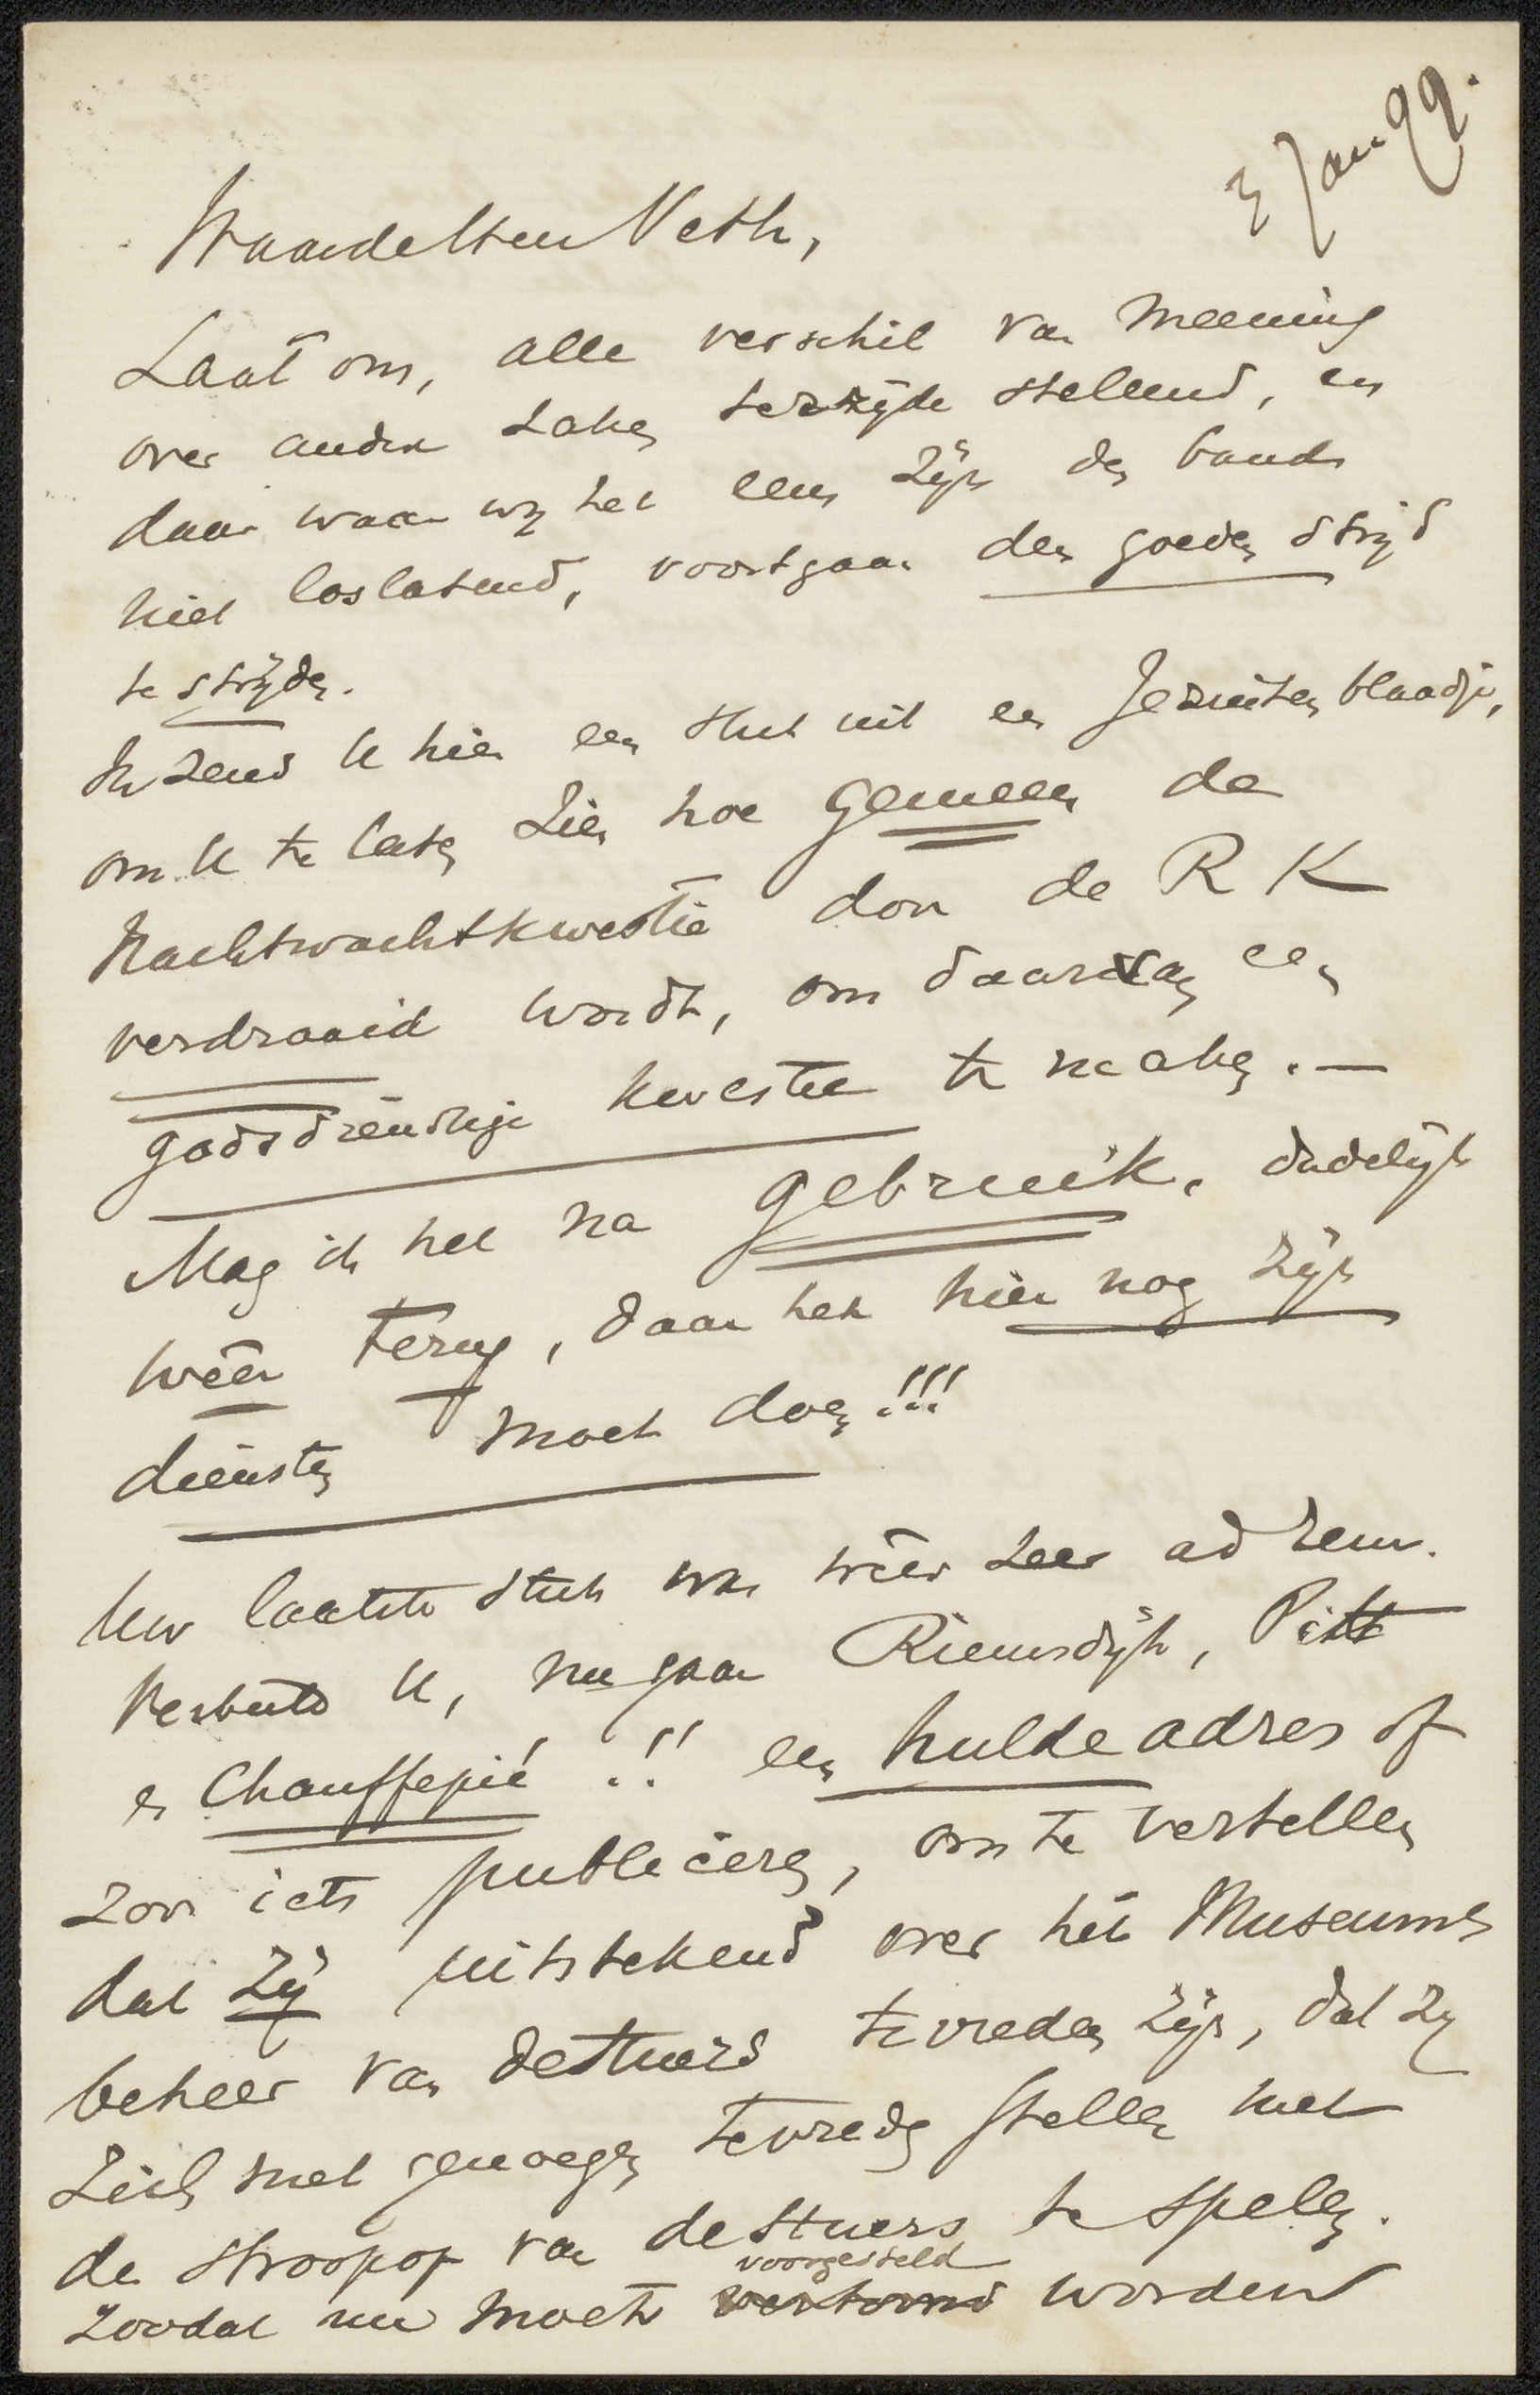 3 Jan 99.
Waarde Heer Veth,
Laat ons, alle verschil van meening
over andere zaken terzyde stellend, en
daar waar wy het eens zyn den band
niet loslatend, voortgaan den goeden stryd
te stryden.
Ik zend U hier een stuk uit een Jezuiten blaadje,
om U te laten zien hoe gemeen de
Nachtwachtkwestie door de R K
verdraaid wordt, om daarvan een
godsdienstige kwestie te maken. —
Mag ik het na gebruik, dadelyk
wêer terug, daar het hier nog zyn
diensten moet doen!!!
Uw laatste stuk was wêer zeer ad rem.
Verbeeld U, nu gaan Riemsdyk, Pitt
en Chauffepié !! een hulde adres of
zoo iets publiceren, om te vertellen
dat zy uitstekend over het Museums
beheer van deStuers tevreden zyn, dat zy
zich met genoegen tevreden stellen met
de stroopop van deStuers te spelen.
zoodat nu moet voorgesteld worden